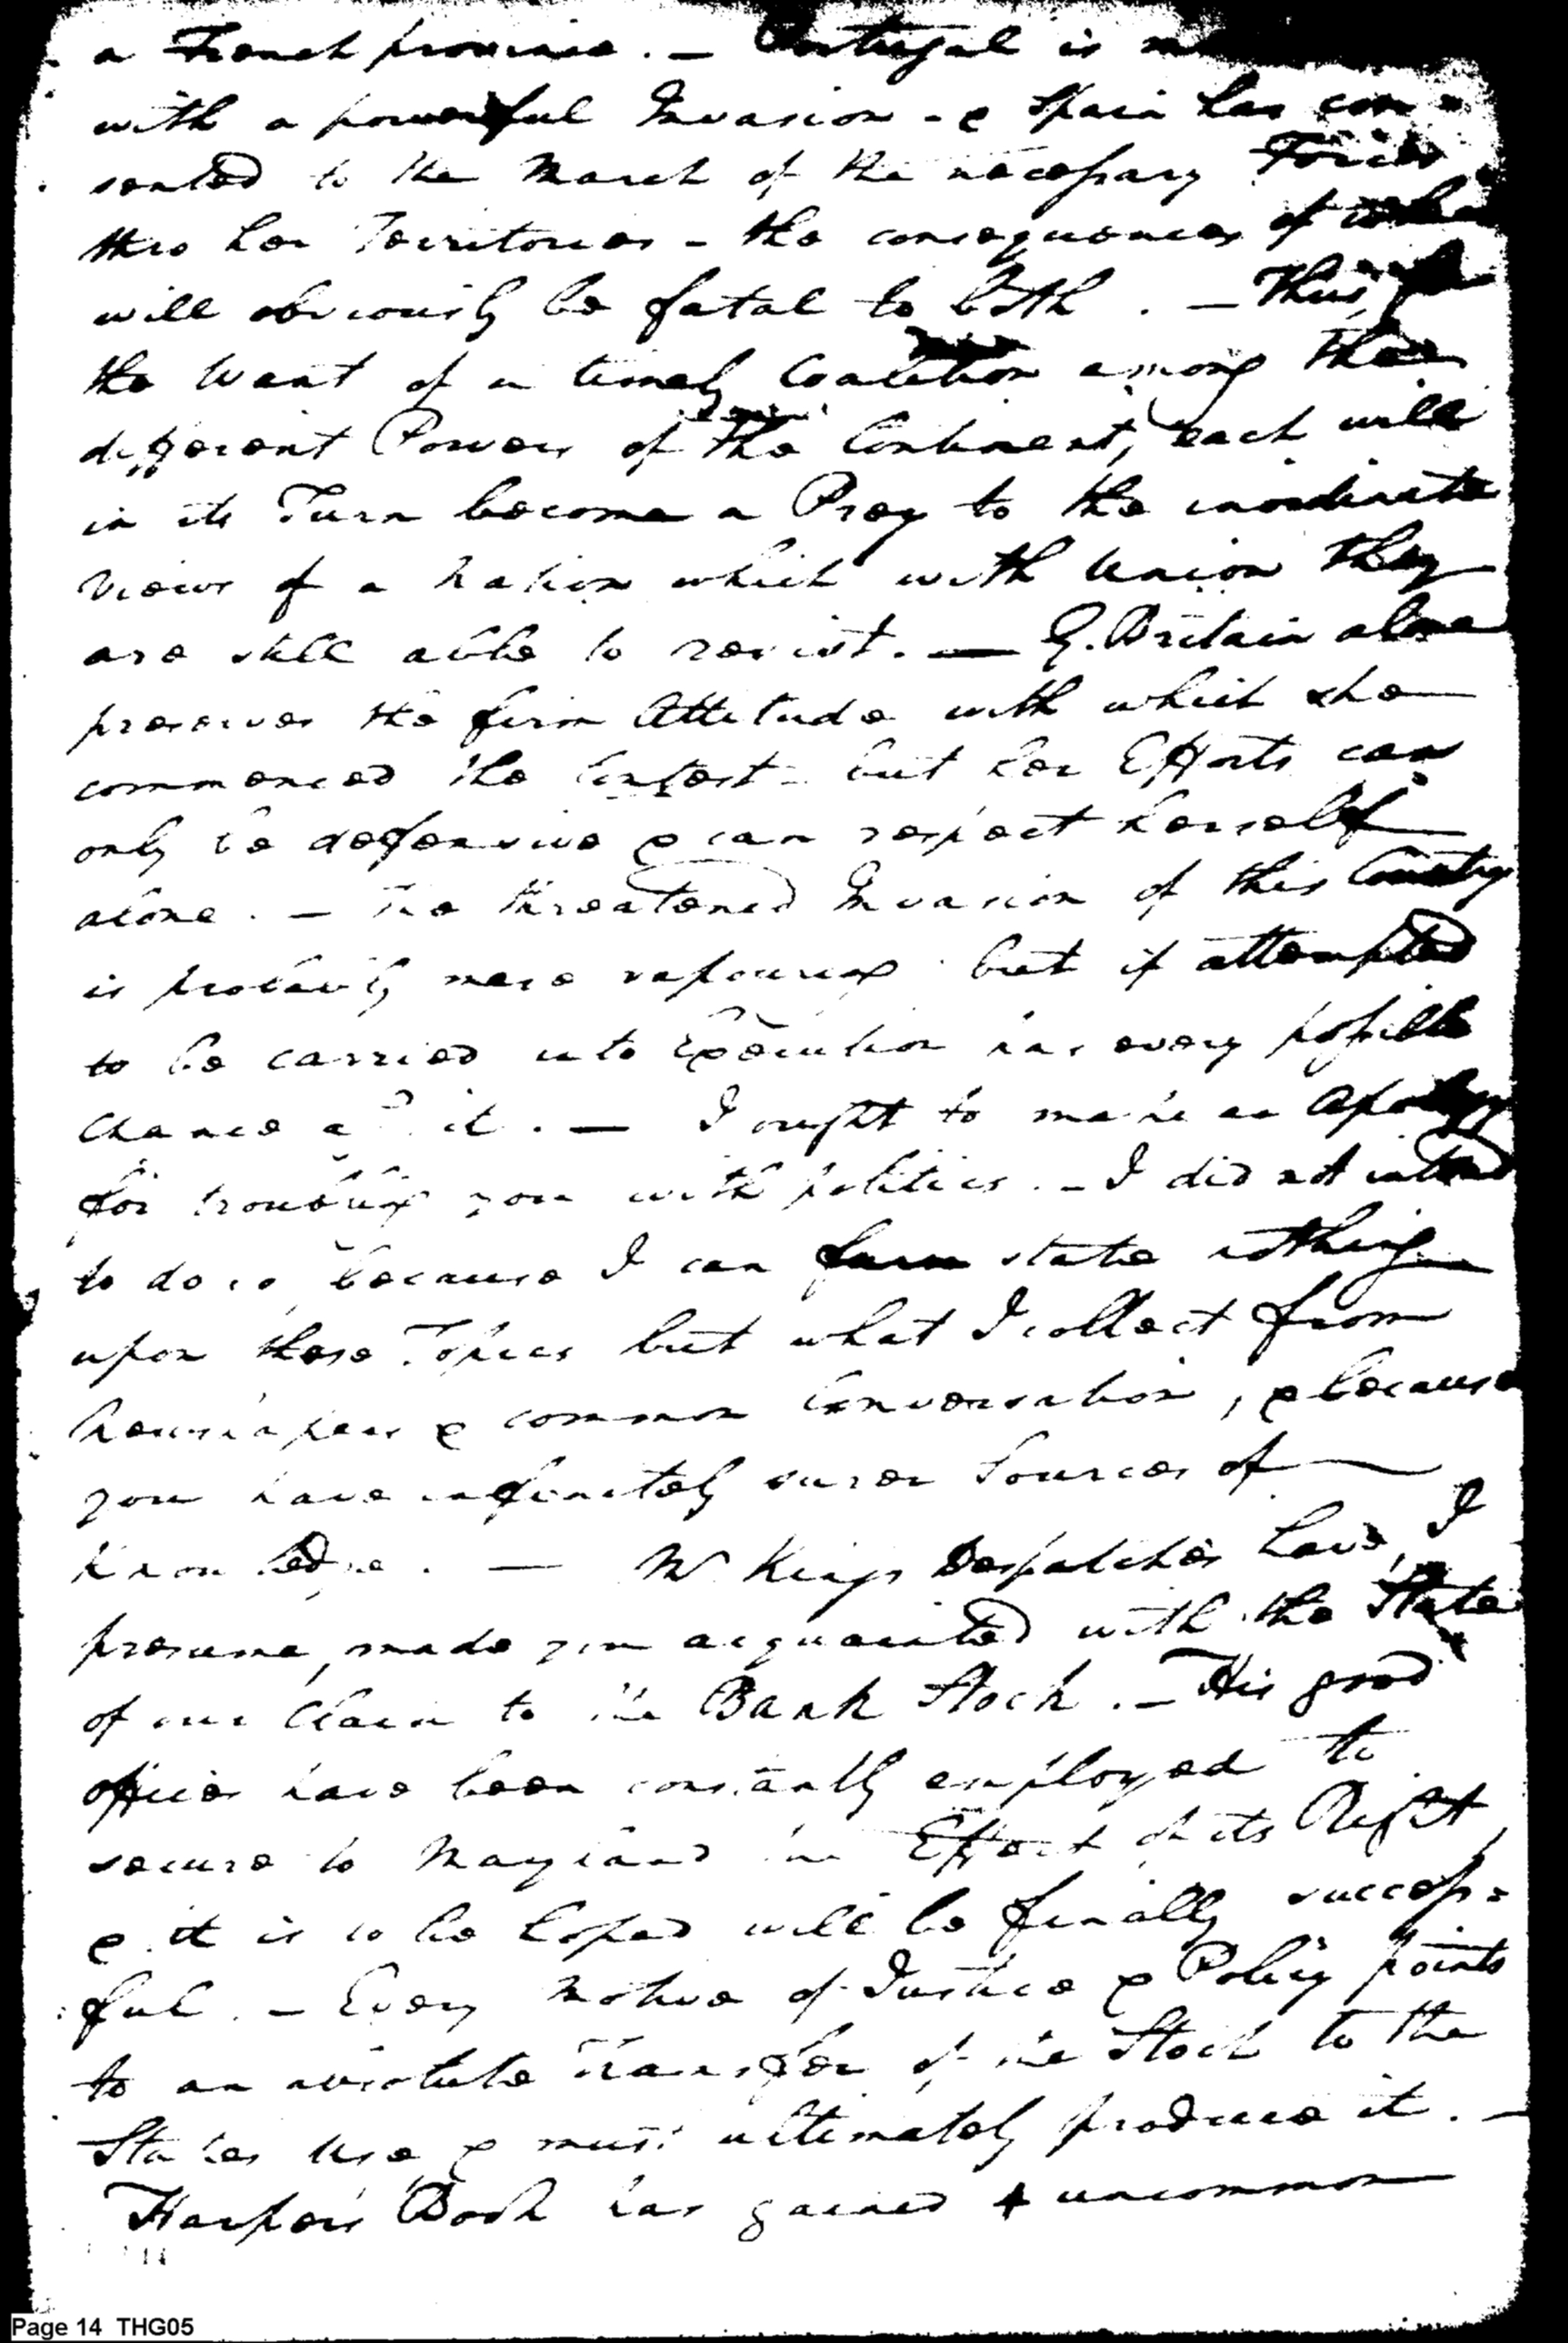 a French province. — Portugal is
with a powerful Invasion - & Spain has con=
sented to the March of the necessary Forces
thro her Territories - the consequences of
will obviously be fatal to both. — Thus,
the Want of a timely Coalition among the
different Powers of the Continent, each will
in its Turn become a Prey to the inordinate
views of a nation which with Union they
are still able to resist. — G. Britain alone
preserves the firm Attitude with which she
commenced the Contest - but her Efforts can
only be defensive & can respect herself
alone. — The threatened Invasion of this Country
is probably mere vapouring but if attempted
to be carried into Execution has every possible
chance it. — I ought to make an Apology
for troubling you with politics. — I did not intend
to do so, because I can state nothing
upon these Topics but what I collect from
Newspapers & common Conversation, & because
you have infinitely surer Sources of
Knowledge. — Mr Kings Despatches have, I
presume, made you acquainted with the State
of our Claim to the Bank Stock. — His good
offices have been constantly employed to
secure to Maryland the Effect of its Right,
& it is to be hoped will be finally success=
ful. — Every motive of Justice & Policy points
to an absolute Transfer of the Stock to the
States Use & must ultimately produce it. —
Harpers Book has gained uncommon
Page 14 THG05